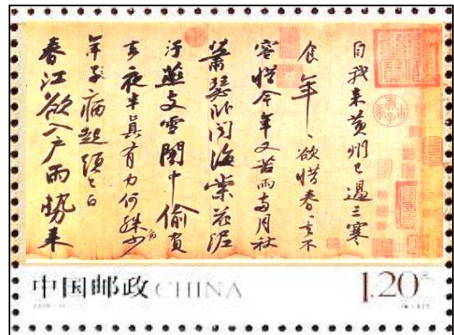 自我來黃州已過三寒
食年〻欲惜春〻去不
容惜今年又苦雨兩月秋
蕭瑟卧聞海棠花泥
汙燕支雪闇中偷負
去夜半真有力何殊少
年子病起頭已白
春江欲入戶雨勢來
中国邮政 CHINA
1.20元